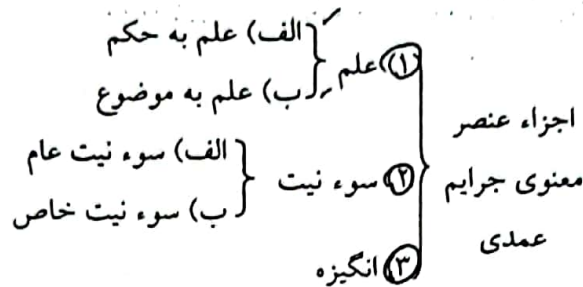 اجزاء عنصر
معنوی جرایم
عمدی
۱) علم
الف) علم به حکم
ب) علم به موضوع
۲) سوء نیت
الف) سوء نیت عام
ب) سوء نیت خاص
۳) انگیزه